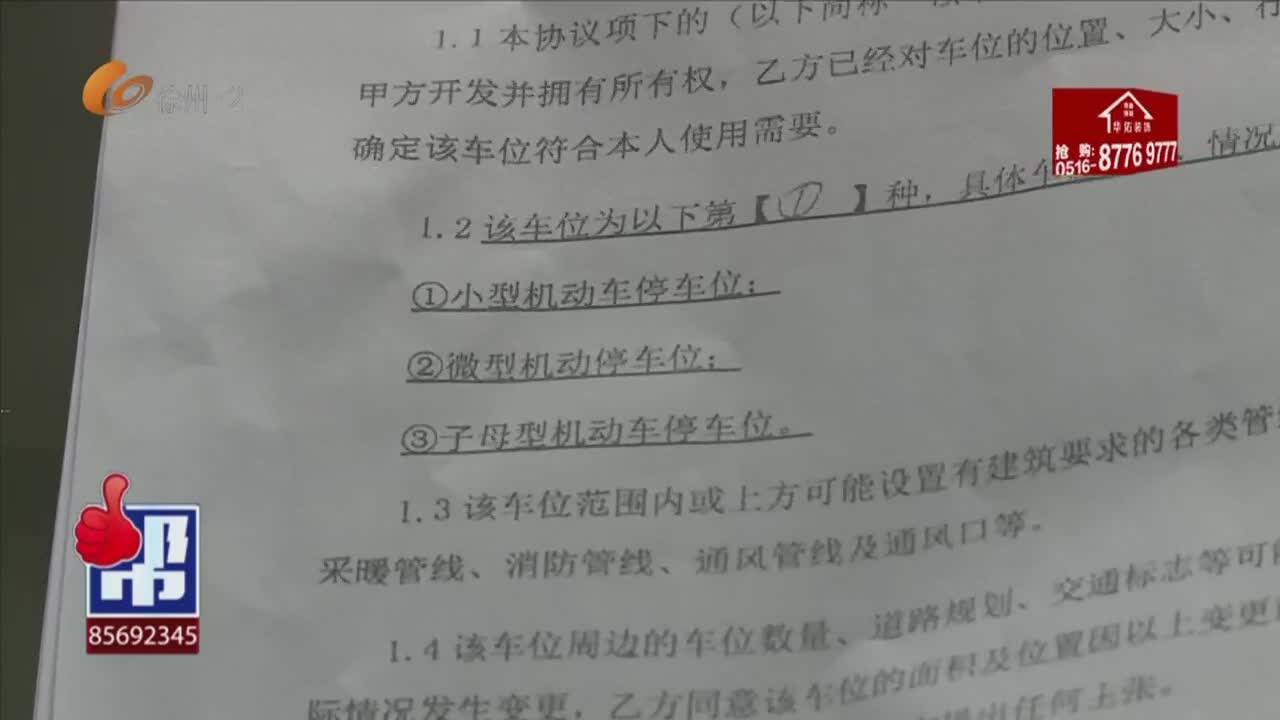 1.1本协议项下的（以下简称
甲方开发并拥有所有权，乙方已经对车位的位置、大小、
确定该车位符合本人使用需要。
1.2该车位为以下第【① 】种，具体 情况
①小型机动车停车位；
②微型机动停车位；
③子母型机动车停车位。
1.3该车位范围内或上方可能设置有建筑要求的各类管
采暖管线、消防管线、通风管线及通风口等。
1.4该车位周边的车位数量、道路规划、交通标志等可
际情况发生变更，乙方同意该车位的面积及位置因以上变更
出任何主张。
徐州·2
华佑装饰
抢 购:
0516-8776 9777
帮
85692345